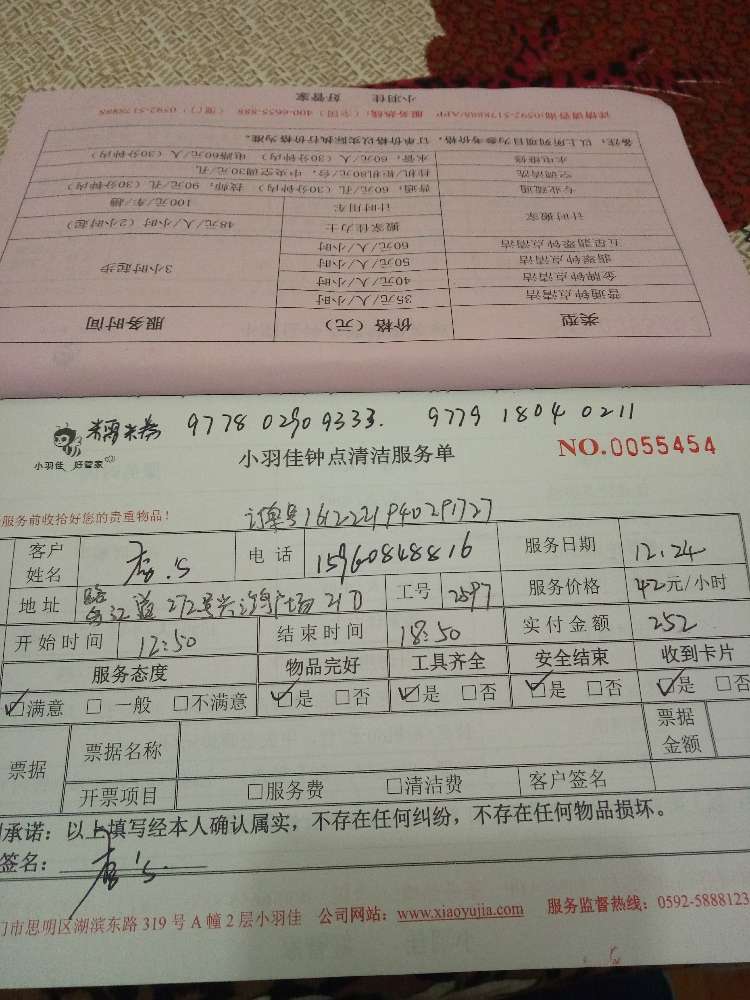 小羽佳 好管家
详情请咨询:0592-5178888/APP 服务热线：（全国）400-6655-888 （厦门）0592-5178888
备注：以上所列项目为参考价格，订单价格以实际执行价格为准。
水电维修 水管：60元/人（30分钟内） 电路60元/人（30分钟内）
空调清洗 挂机/柜机80元/台，中央空调30元/孔
专业疏通 普通：60元/孔（30分钟内） 技师：90元/孔（30分钟内）
计时搬家 计时用车 100元/车/趟
搬家佳力士 48元/人/小时（2小时起）
五星翡翠钟点清洁 60元/人/小时
翡翠钟点清洁 50元/人/小时
金牌钟点清洁 40元/人/小时 3小时起步
普通钟点清洁 35元/人/小时
类型 价格（元） 服务时间
9778 0290 9333. 9779 1804 0211
小羽佳 好管家
小羽佳钟点清洁服务单
NO.0055454
服务前收拾好您的贵重物品！
订单号1612221940291727
客户姓名 电话 15960848816 服务日期 12.24
地址 272号 广场 21D 工号 2597 服务价格 42元/小时
开始时间 12:50 结束时间 18:50 实付金额 252
服务态度 物品完好 工具齐全 安全结束 收到卡片
☑满意 □一般 □不满意 ☑是 □否 ☑是 □否 ☑是 □否 ☑是 □否
票据 票据名称 票据金额
开票项目 □服务费 □清洁费 客户签名
承诺：以上填写经本人确认属实，不存在任何纠纷，不存在任何物品损坏。
签名：
门市思明区湖滨东路319号A幢2层小羽佳 公司网站：www.xiaoyujia.com 服务监督热线：0592-5888123